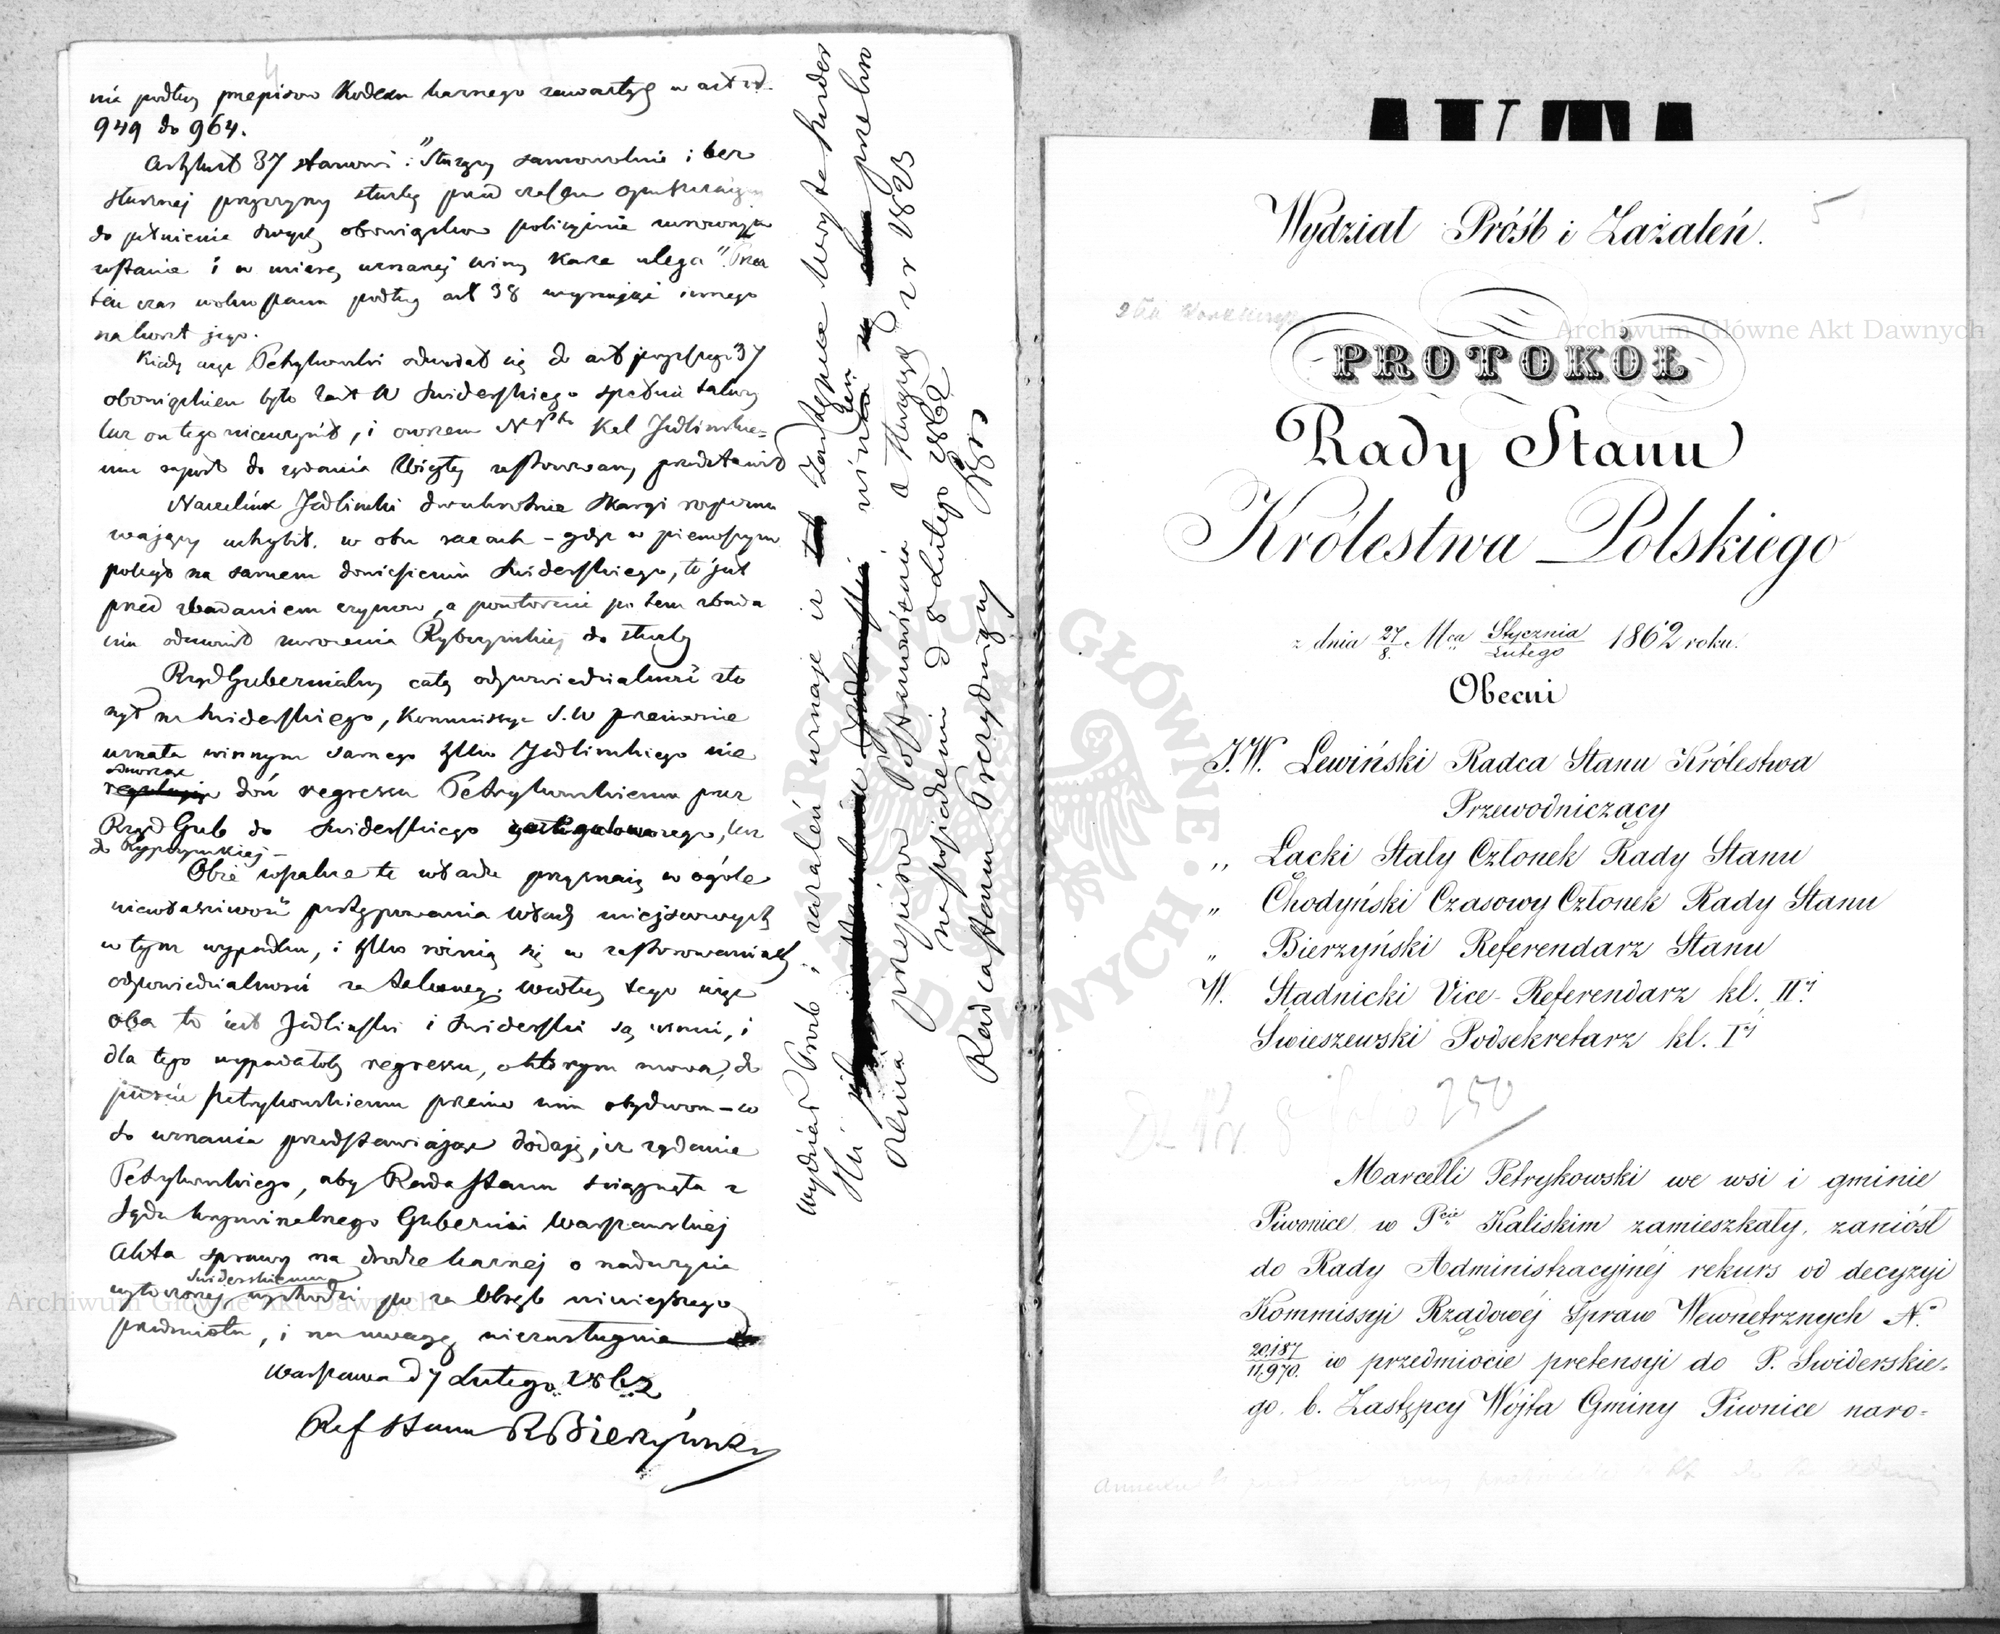 4
nia podług przepisów Kodexu karnego zawartych w art od
949 do 964.
Artykuł 37 stanowi: "Służący samowolnie i bez
słusznej przyczyny służbę przed czasem opuszczający
do pełnienia swych obowiązków policyjnie
zostanie i w miarę uznanej winy karze ulega". Przez
ten czas wolno panu podług art 38 wynająć innego
na koszt jego.
Kiedy więc Petrykowski odwołał się do art powyższego 37
obowiązkiem było Zast W Swiderskiego spełnić takowy
lecz on tego nieuczynił, i owszem Kal Jedlińskie=
mu raport do żądania przedstawił
Naczelnik Jedliński dwukrotnie skargi rozpozna
wający uchybił w obu razach – gdyż w pierwszym
polegał na samem doniesieniu Swiderskiego, to jest
przed zbadaniem czynów, a powtórnie po tem zbada
niu odmówił zwrócenia do służby
Rząd Gubernialny całą odpowiedzialność zło
żył na Swiderskiego, Kommissya S.W przeciwnie
uznała winnym samego tylko Jedlińskiego nie
odnosząc
doń regressu Petrykowskiemu przez
Rząd Gub do Swiderskiego lecz
do
Obie wszakże te władze przyznają w ogóle
niewłaściwość postępowania władz miejscowych
w tym wypadku, i tylko różnią się w zastosowaniach
odpowiedzialności za takową. Według tego więc
oba to jest Jedliński i Swiderski są winni, i
dla tego wypadałoby regressu, o którym mowa, do
puścić Petrykowskiemu przeciw nim obydwom – co
do uznania przedstawiając dodaję, iż żądanie
Petrykowskiego, aby Rada Stanu ściągnęła z
Sądu kryminalnego Gubernii Warszawskiej
Akta sprawy na drodze karnej o nadużycia
Swiderskiemu
wytoczonej wychodzi po za obręb niniejszego
przedmiotu, i na uwagę niezasługuje
Warszawa d 7 Lutego 1862
Ref Stanu R Bierzyński
Wydział Prośb i zażaleń uznaje iż Zastępca Wójta Swider
ski winien
Olnia przepisów Postanowienia z r 1823
na posiedzeniu d 8 Lutego 1862
Radca Stanu Prezydujący
5
Wydział Próśb i Zażaleń.
PROTOKÓŁ
Rady Stanu
Królestwa Polskiego
z dnia 27/8. Mca Stycznia/Lutego 1862 roku.
Obecni
J.W. Lewiński Radca Stanu Królestwa
Przewodniczący
„ Łącki Stały Członek Rady Stanu
„ Chodyński Czasowy Członek Rady Stanu
„ Bierzyński Referendarz Stanu
W. Stadnicki Vice-Referendarz kl. IIej
Swieszewski Podsekretarz kl. Iej
250
Marcelli Petrykowski we wsi i gminie
Piwonice w Pcie Kaliskim zamieszkały, zaniósł
do Rady Administracyjnéj rekurs od decyzyi
Kommissyi Rządowéj Spraw Wewnętrznych No
20.187/11,970. w przedmiocie pretensyi do P. Swiderskie=
go b. Zastępcy Wójta Gminy Piwnice naro=
Archiwum Główne Akt Dawnych
Archiwum Główne Akt Dawnych
ARCHIWUM GŁÓWNE AKT DAWNYCH